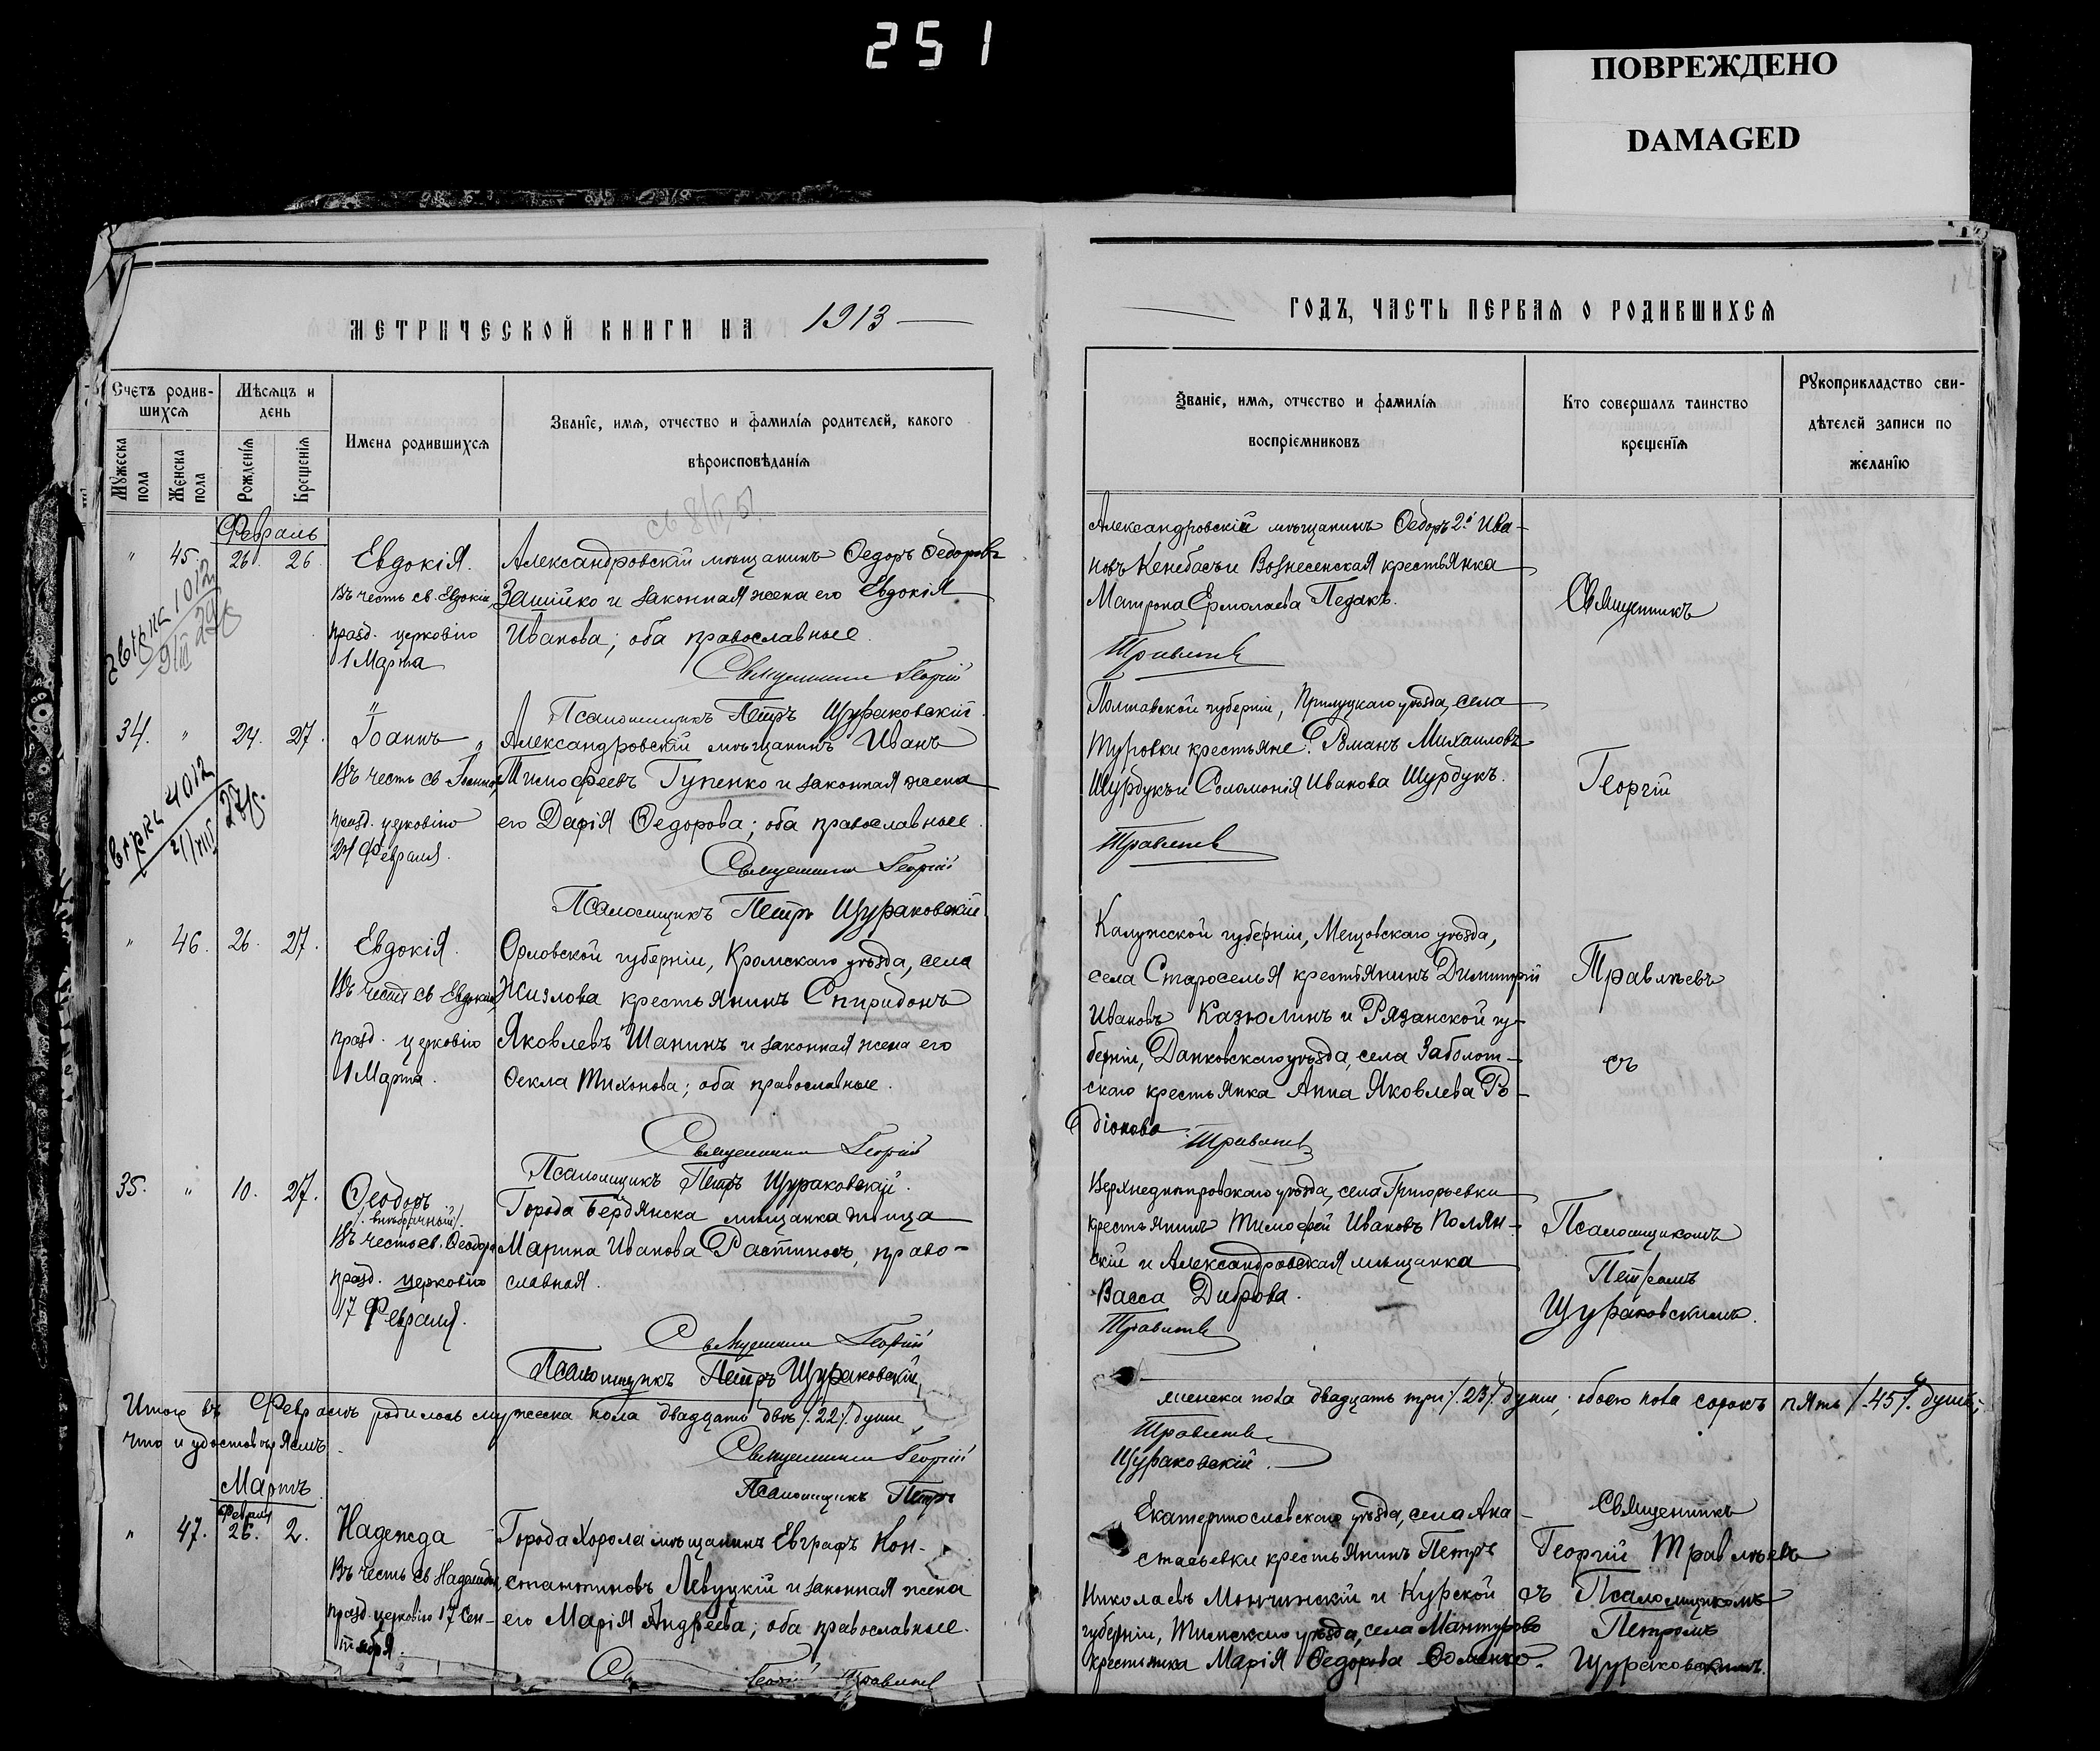 251
ПОВРЕЖДЕНО
DAMAGED
МЕТРИЧЕСКОЙ КНИГИ НА 1913
Счетъ родив-
шихся
Мужеска
пола
Женска
пола
Мѣсяцъ и
день
Рожденія
Крещенія
Имена родившихся
Званіе, имя, отчество и фамилія родителей, какого
вѣроисповѣданія
Февраль
" 45. 26. 26.
Евдокія.
Въ честь св. Евдокіи,
празд. церковію
1 Марта
Александровскій мѣщанинъ Ѳедоръ Ѳедоровъ
Зашійко и законная жена его Евдокія
Иванова; оба православные.
Священникъ Георгій
Псаломщикъ Петръ Щураковскій.
34. " 24. 27.
Іоаннъ
Въ честь св. Іоанна,
празд. церковію
24 Февраля.
Александровскій мѣщанинъ Иванъ
Тимофеевъ Гупенко и законная жена
его Дарія Ѳедорова; оба православные.
Священникъ Георгій
Псаломщикъ Петръ Щураковскій
" 46. 26. 27.
Евдокія.
Въ честь св Евдокіи,
празд. церковію
1 Марта.
Орловской губерніи, Кромскаго уѣзда, села
Жизлова крестьянинъ Спиридонъ
Яковлевъ Шанинъ и законная жена его
Ѳекла Тихонова; оба православные.
Священникъ Георгій
Псаломщикъ Петръ Щураковскій.
35. " 10. 27.
Ѳеодоръ
/. внѣбрачный/.
Въ честь св. Ѳеодора
празд. церковію
17 Февраля.
Города Бердянска мѣщанка дѣвица
Марина Иванова Растинов, право-
славная.
Священникъ Георгій
Псаломщикъ Петръ Щураковскій
Итого въ Февралѣ родилось мужеска пола двадцать двѣ /.22/. души,
что и удостовѣряемъ.
Священникъ Георгій
Псаломщикъ Петръ
Мартъ.
Февраля
" 47. 26. 2.
Надежда
Въ честь св Надежды,
празд. церковію 17 Сен-
тября.
Города Хорола мѣщанинъ Евграфъ Кон-
стантиновъ Левуцкій и законная жена
его Марія Андреева; оба православные.
Св Георгій Травлѣевъ
ГОДЪ, ЧАСТЬ ПЕРВАЯ О РОДИВШИХСЯ
Званіе, имя, отчество и фамилія
воспріемниковъ
Кто совершалъ таинство
крещенія
Рукоприкладство сви-
дѣтелей записи по
желанію
Александровскій мѣщанинъ Ѳедоръ 2й Ива-
новъ Кенебасъ и Вознесенская крестьянка
Матрона Ермолаева Педакъ.
Травлѣевъ
Полтавской губерніи, Прилуцкаго уѣзда, села
Туровки крестьяне: Романъ Михаиловъ
Шурбукъ и Соломонія Иванова Шурбукъ.
Травлѣевъ
Калужсской губерніи, Мещовскаго уѣзда,
села Староселья крестьянинъ Димитрій
Ивановъ Казюлинъ и Рязанской гу-
берніи, Данковскаго уѣзда, села Заболот-
скаго крестьянка Анна Яковлева Ро-
діонова
Травлѣевъ
Верхнеднѣпровскаго уѣзда, села Григорьевки
крестьянинъ Тимофей Ивановъ Полян-
скій и Александровская мѣщанка
Васса Диброва.
Травлѣевъ
женска пола двадцать три /.23/. души, обоего пола сорокъ пять /.45/. душъ,
Травлѣевъ
Щураковскій.
Екатеринославскаго уѣзда, села Ана-
стасьевки крестьянинъ Петръ
Николаевъ Мончинскій и Курской
губерніи, Тимскаго уѣзда, села Мантурово
крестьянка Марія Ѳедорова Ѳоменко.
Священникъ
Георгій
Травлѣевъ
съ
Псаломщикомъ
Петромъ
Щураковскимъ.
Священникъ
Георгій Травлѣевъ
съ Псаломщикомъ
Петромъ
Щураковскимъ.